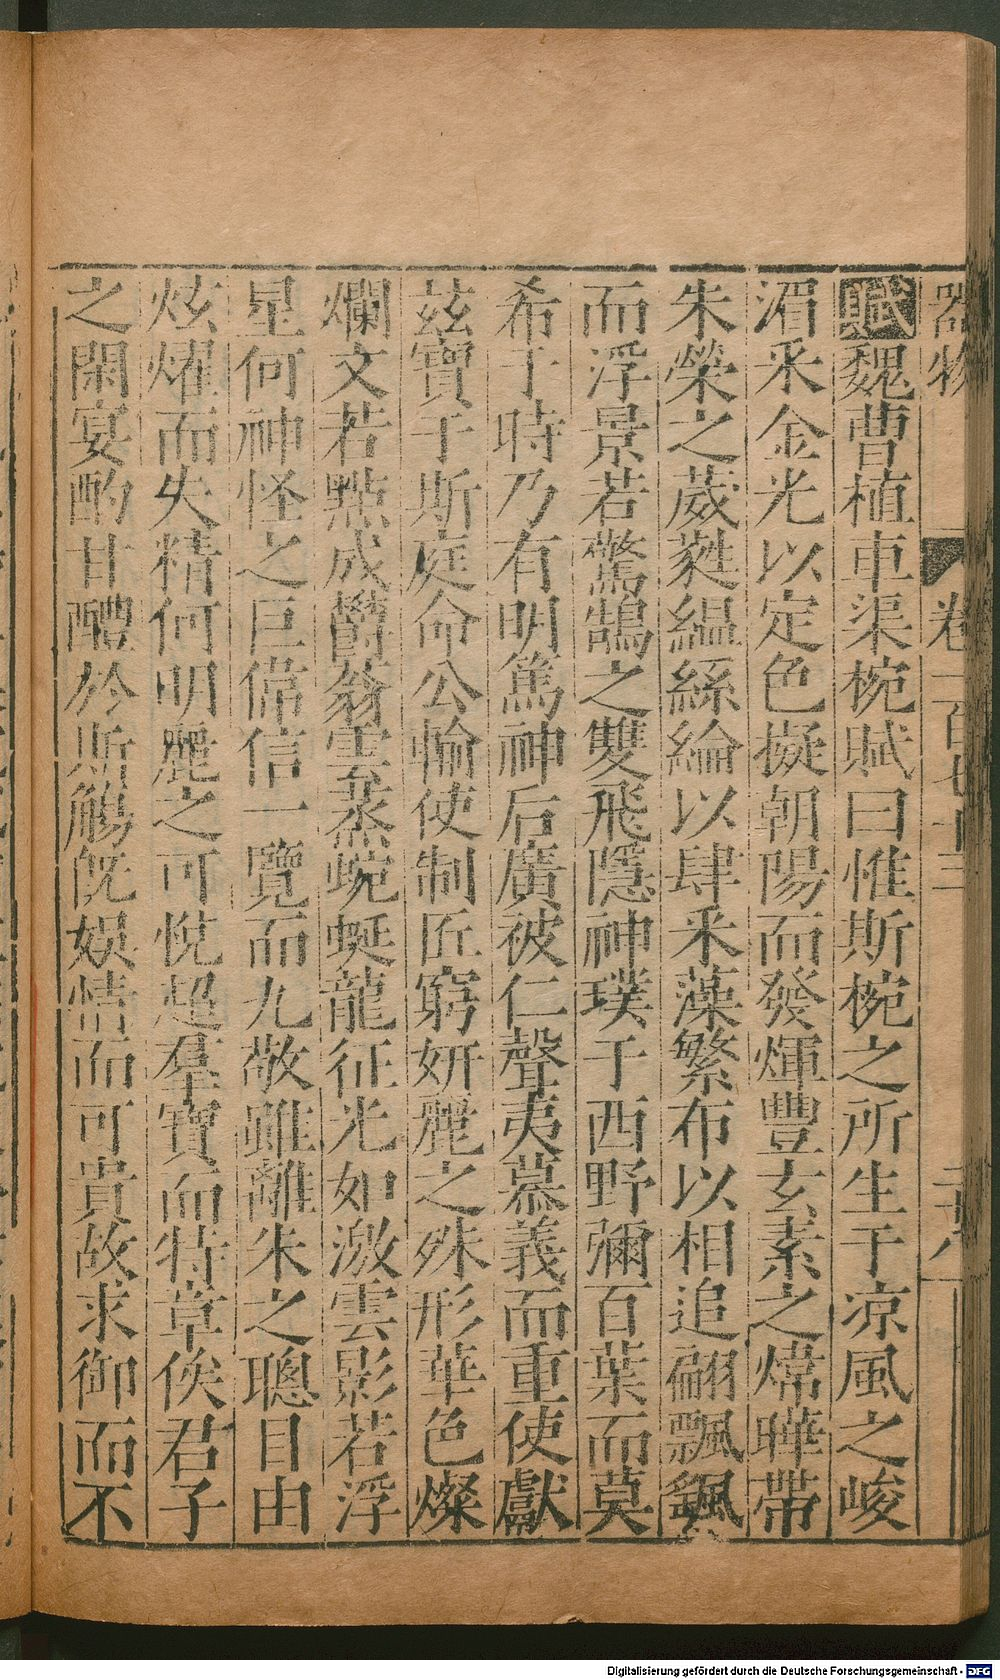 器物 卷一百七十三 二十八
賦魏曹植車渠椀賦曰惟斯椀之所生于凉風之峻
湄釆金光以定色擬朝陽而發煇豐玄素之煒曄帶
朱榮之葳蕤緼絲綸以肆釆藻繁布以相追翩飄颻
而浮景若驚鵠之雙飛隱神璞于西野彌百葉而莫
希于時乃有明篤神后廣被仁聲夷慕義而重使獻
茲寶于斯庭命公輸使制匠窮妍麗之殊形華色燦
爛文若點成欝蓊雲蒸蜿蜒龍征光如激雲影若浮
星何神怪之巨偉信一覽而九敬雖離朱之聰目由
炫燿而失精何明麗之可悅超羣寶而特章俟君子
之閑宴酌甘醴於斯觴旣娛情而可貴故求御而不
Digitalisierung gefördert durch die Deutsche Forschungsgemeinschaft - DFG